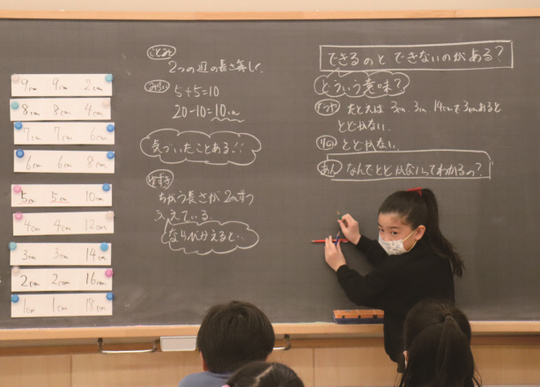 9cm 9cm 2cm
8cm 8cm 4cm
7cm 7cm 6cm
6cm 6cm 8cm
5cm 5cm 10cm
4cm 4cm 12cm
3cm 3cm 14cm
2cm 2cm 16cm
1cm 1cm 18cm
ことみ
2つの辺の長さ等しく
みらい 5+5=10
20-10=10cm
気づいたことある!!
ゆずき
ちがう長さが2cmずつ
ふえている
ならびかえると…
できるのと できないのがある?
どういう意味?
たとえば 3cm 3cm 14cm
とどかない.
とどかない.
あん なんでとどかないってわかるの?